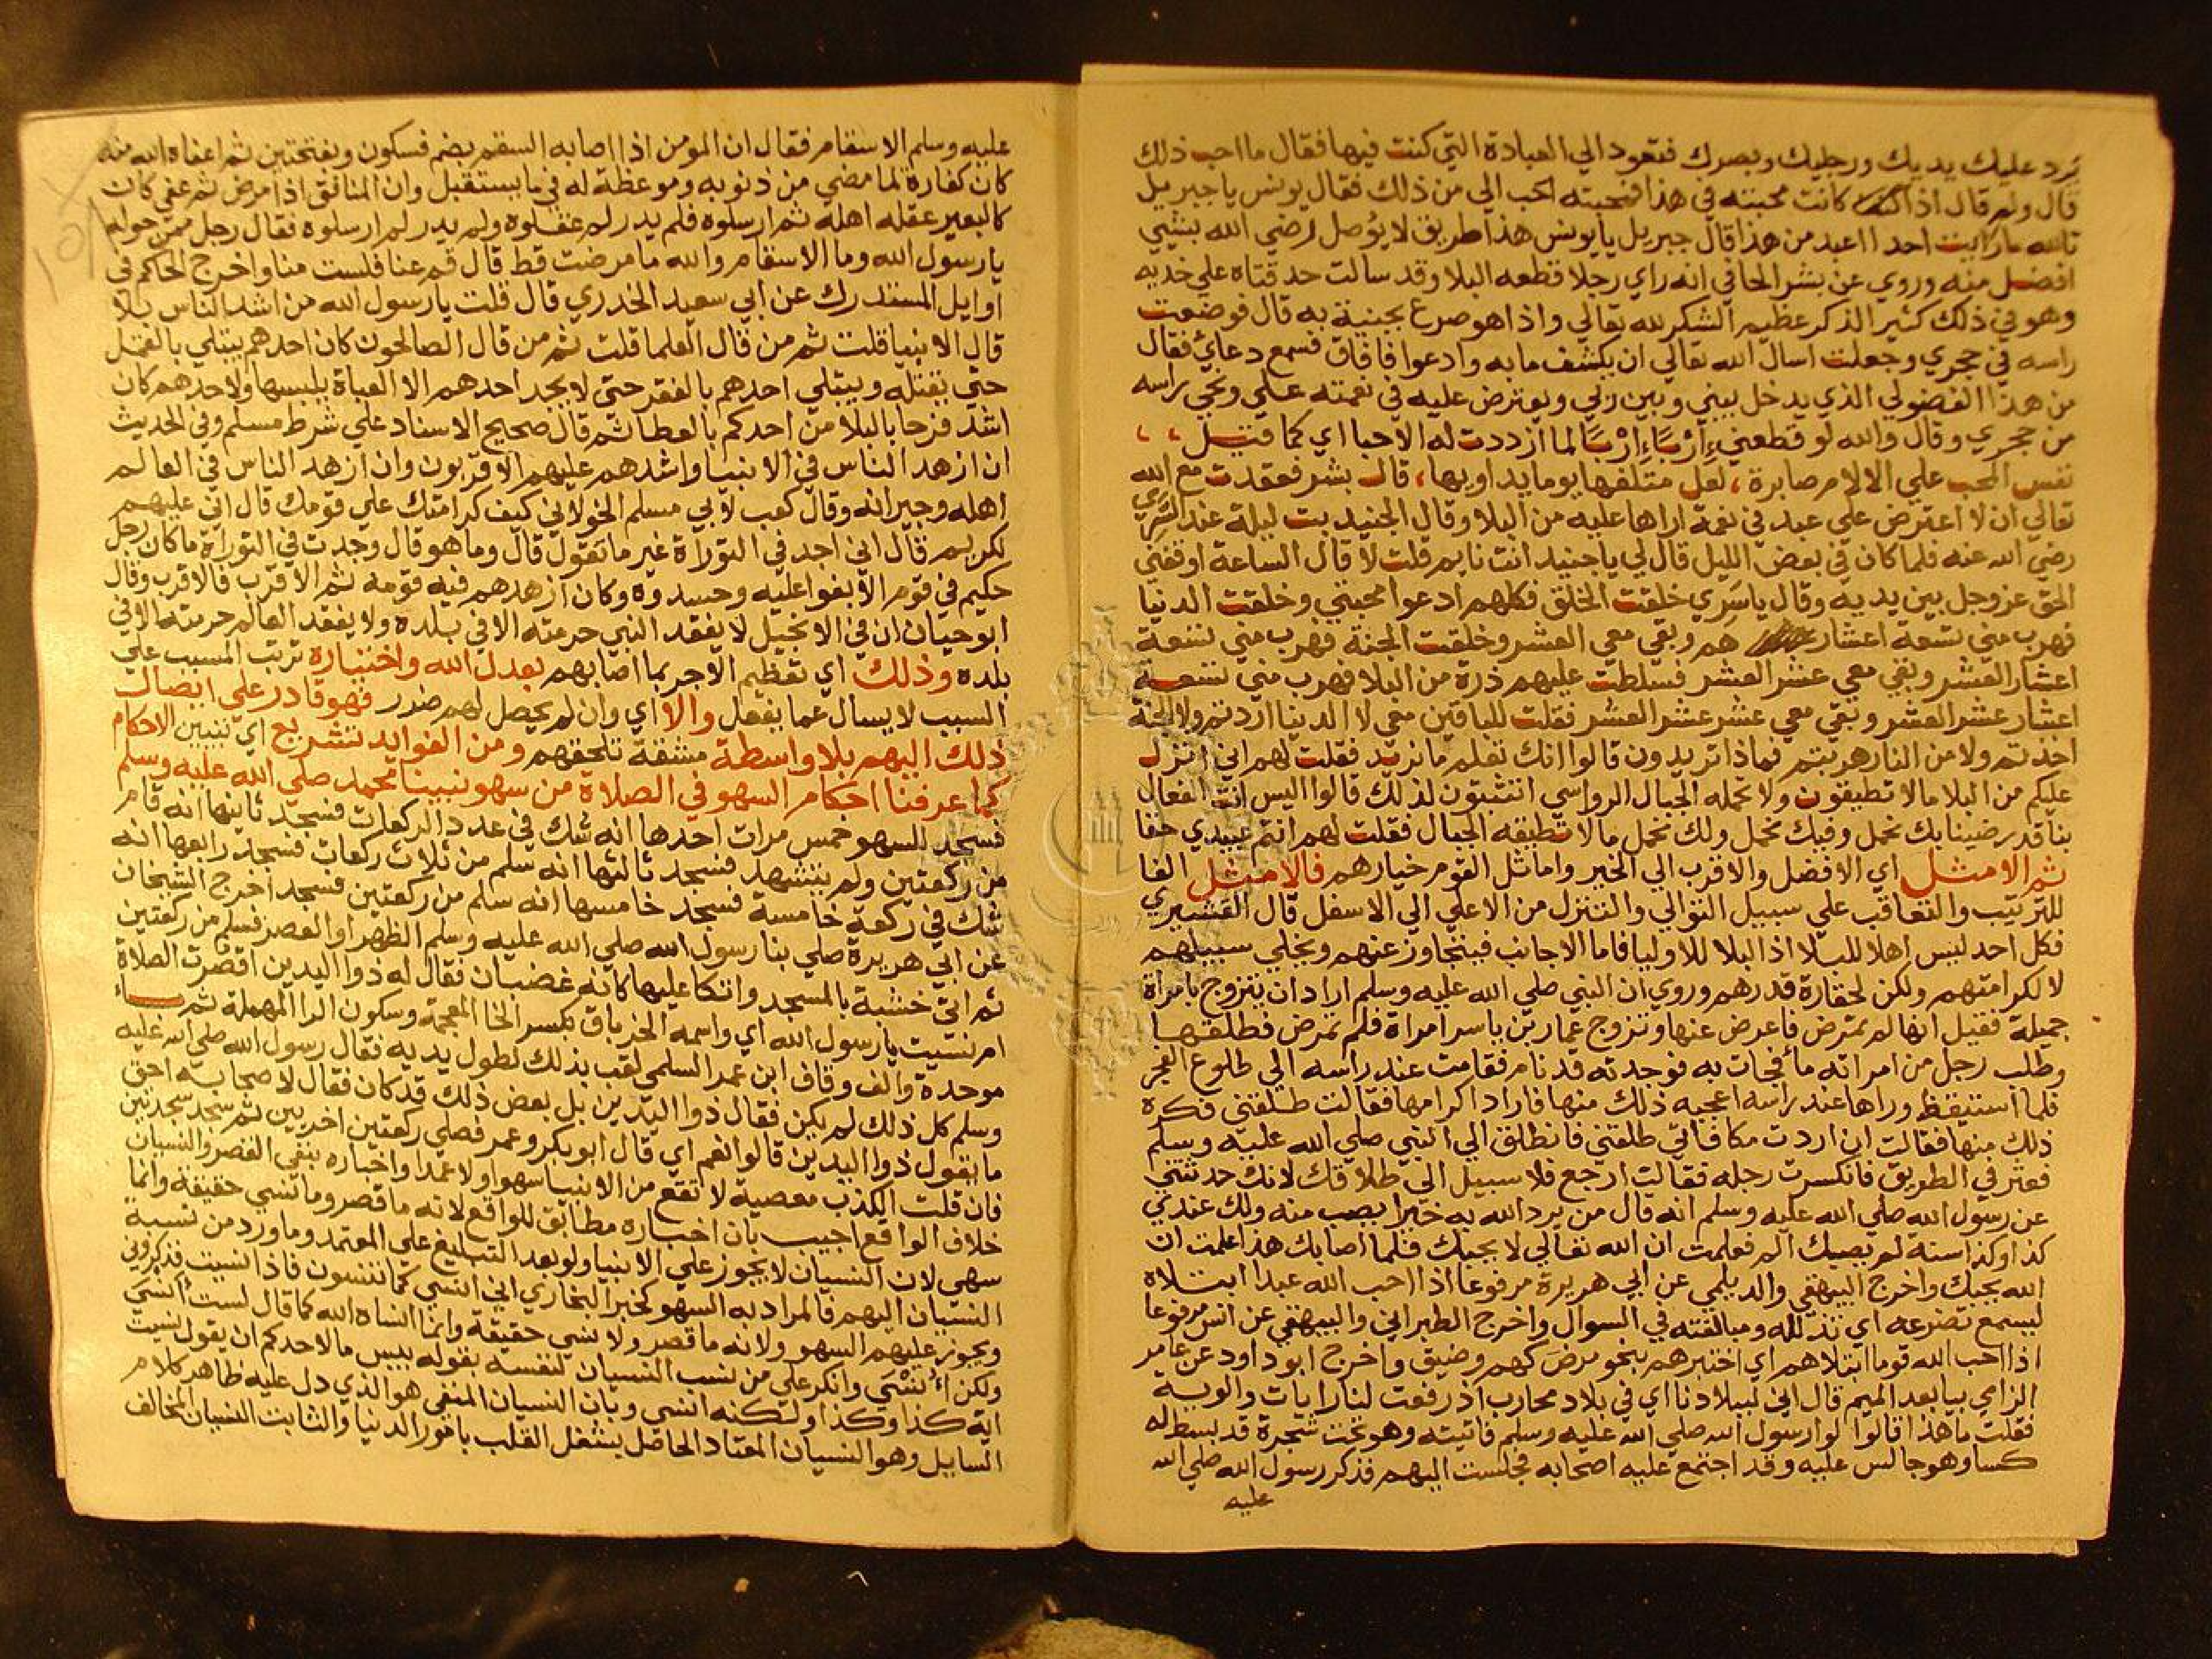 يرد عليك يديك ورجليك وبصرك فتعود الي العبادة التي كنت فيها فقال ما احب ذلك
قال ولم قال اذا كانت محبته في هذا فمحبته احب الي من ذلك فقال يونس يا جبريل
تالله ما رايت احدا اعبد من هذا قال جبريل يا يونس هذا طريق لا يوصل لرضي الله بشي
افضل منه وروي عن بشر الحافي انه راي رجلا قطعه البلا وقد سالت حدقتاه علي خديه
وهو في ذلك كثير الذكر عظيم الشكر لله تعالي واذا هو صرع بجنبة به قال فوضعت
راسه في حجري وجعلت اسال الله تعالي ان يكشف ما به وادعوا فافاق فسمع دعاي فقال
من هذا الفضولي الذي يدخل بيني وبين ربي ويعترض عليه في نعمته علي ونحي راسه
من حجري وقال والله لو قطعني اِرْبًا اِرْبًا لما ازددت له الا حبا اي كما قيل
نفس المحب علي الالام صابرة ، لعل متلفها يوما يداويها ، قال بشر فعقدت مع الله
تعالي ان لا اعترض علي عبد في نعمة اراها عليه من البلا وقال الجنيد بت ليلة عند السري
رضي الله عنه فلما كان في بعض الليل قال لي يا جنيد انت نايم قلت لا قال الساعة اوقفني
الحق عز وجل بين يديه وقال يا سري خلقت الخلق فكلهم ادعوا محبتي وخلقت الدنيا
فهرب مني تسعة اعشارهم وبقي معي العشر وخلقت الجنة فهرب مني تسعة
اعشار العشر وبقي معي عشر العشر فسلطت عليهم ذرة من البلا فهرب مني تسعة
اعشار عشر العشر وبقي معي عشر عشر العشر فقلت للباقين معي لا الدنيا اردتم ولا الجنة
اخذتم ولا من النار هربتم فماذا تريدون قالوا انك تعلم ما نريد فقلت لهم اني انزل
عليكم من البلا ما لا تطيقون ولا تحمله الجبال الرواسي اتثبتون لذلك قالوا اليس انت الفعال
بنا قد رضينا بك نحمل وفيك نحمل ولك نحمل ما لا تطيقه الجبال فقلت لهم انتم عبيدي حقا
ثم الامثل اي الافضل والاقرب الي الخير واماثل القوم خيارهم فالامثل الفا
للترتيب والتعاقب علي سبيل التوالي والتنزل من الاعلي الي الاسفل قال القشيري
فكل احد ليس اهلا للبلا اذ البلا للاوليا فاما الاجانب فيتجاوز عنهم ويخلي سبيلهم
لا لكرامتهم ولكن لحقارة قدرهم وروي ان النبي صلي الله عليه وسلم اراد ان يتزوج بامراة
جميلة فقيل انها لم تمرض فاعرض عنها وتزوج عمار بن ياسر امراة فلم تمرض فطلقها
وطلب رجل من امراته ماء فجات به فوجدته قد نام فقامت عند راسه الي طلوع الفجر
فلما استيقظ وراها عند راسه اعجبه ذلك منها فاراد اكرامها فقالت طلقني فكره
ذلك منها فقالت ان اردت مكافاتي طلقني فانطلق الي النبي صلي الله عليه وسلم
فعثر في الطريق فانكسرت رجله فقالت ارجع فلا سبيل الي طلاقك لانك حدثتني
عن رسول الله صلي الله عليه وسلم انه قال من يرد الله به خيرا يصب منه ولك عندي
كذا وكذا سنة لم يصبك الم فعلمت ان الله تعالي لا يحبك فلما اصابك هذا علمت ان
الله يحبك واخرج البيهقي والديلمي عن ابي هريرة مرفوعا اذا احب الله عبدا ابتلاه
ليسمع تضرعه اي تذلله ومبالغته في السوال واخرج الطبراني والبيهقي عن انس مرفوعا
اذا احب الله قوما ابتلاهم اي اختبرهم بنحو مرض كهم وضيق واخرج ابو داود عن عامر
الرامي بيا بعد الميم قال اني لببلادنا اي في بلاد محارب اذ رفعت لنا رايات والوية
فقلت ما هذا قالوا لوا رسول الله صلي الله عليه وسلم فاتيته وهو تحت شجرة قد بسط له
كسا وهو جالس عليه وقد اجتمع عليه اصحابه فجلست اليهم فذكر رسول الله صلي الله
عليه
عليه وسلم الاسقام فقال ان المومن اذا اصابه السقم بضم فسكون وبفتحتين ثم اعفاه الله منه
كان كفارة لما مضي من ذنوبه وموعظة له في ما يستقبل وان المنافق اذا مرض ثم عفي كان
كالبعير عقله اهله ثم ارسلوه فلم يدر لم عقلوه ولم يدر لم ارسلوه فقال رجل ممن حوله
يا رسول الله وما الاسقام والله ما مرضت قط قال قم عنا فلست منا واخرج الحاكم في
اوايل المستدرك عن ابي سعيد الخدري قال قلت يا رسول الله من اشد الناس بلا
قال الانبيا قلت ثم من قال العلما قلت ثم من قال الصالحون كان احدهم يبتلي بالقمل
حتي يقتله ويبتلي احدهم بالفقر حتي لا يجد احدهم الا العباة يلبسها ولاحدهم كان
اشد فرحا بالبلا من احدكم بالعطا ثم قال صحيح الاسناد علي شرط مسلم وفي الحديث
ان ازهد الناس في الانبيا واشدهم عليهم الاقربون وان ازهد الناس في العالم
اهله وجيرانه وقال كعب لابي مسلم الخولاني كيف كرامتك علي قومك قال اني عليهم
لكريم قال اني اجد في التوراة غير ما تقول قال وما هو قال وجدت في التوراة ما كان رجل
حكيم في قوم الا بغوا عليه وحسدوه وكان ازهدهم فيه قومه ثم الاقرب فالاقرب وقال
ابو حيان ان في الانجيل لا يفقد النبي حرمته الا في بلده ولا يفقد العالم حرمته الا في
بلده وذلك اي تعظيم الاجر بما اصابهم بعدل الله واختياره ترتب المسبب علي
السبب لا يسال عما يفعل والا اي وان لم يحصل لهم ضرر فهو قادر علي ايصال
ذلك اليهم بلا واسطة مشقة تلحقهم ومن الفوايد تشريع اي تبيين الاحكام
كما عرفنا احكام السهو في الصلاة من سهو نبينا محمد صلي الله عليه وسلم
فسجد للسهو خمس مرات احدها انه شك في عدد الركعات فسجد ثانيها انه قام
من ركعتين ولم يتشهد فسجد ثالثها انه سلم من ثلاث ركعات فسجد رابعها انه
شك في ركعة خامسة فسجد خامسها انه سلم من ركعتين فسجد اخرج الشيخان
عن ابي هريرة صلي بنا رسول الله صلي الله عليه وسلم الظهر او العصر فسلم من ركعتين
ثم اتي خشبة بالمسجد واتكا عليها كانه غضبان فقال له ذوا اليدين اقصرت الصلاة
ام نسيت يا رسول الله اي واسمه الخرباق بكسر الخا المعجمة وسكون الرا المهملة ثم باء
موحدة والف وقاف ابن عمر السلمي لقب بذلك لطول يديه فقال رسول الله صلي الله عليه
وسلم كل ذلك لم يكن فقال ذوا اليدين بل بعض ذلك قد كان فقال لاصحابه احق
ما يقول ذوا اليدين قالوا نعم اي قال ابو بكر وعمر فصلي ركعتين اخريين ثم سجد سجدتين
فان قلت الكذب معصية لا تقع من الانبيا سهوا ولا عمدا واخباره بنفي القصر والنسيان
خلاف الواقع اجيب بان اخباره مطابق للواقع لانه ما قصر وما نسي حقيقة وانما
سهي لان النسيان لا يجوز علي الانبيا ولو بعد التبليغ علي المعتمد وما ورد من نسبة
النسيان اليهم فالمراد به السهو كخبر البخاري اني انسي كما تنسون فاذا نسيت فذكروني
ويجوز عليهم السهو ولانه ما قصر ولا نسي حقيقة وانما انساه الله كما قال لست انسي
ولكن اُنسَّي وانكر علي من نسب النسيان لنفسه بقوله بيس ما لاحدكم ان يقول نسيت
اية كذا وكذا ولكنه انسي وبان النسيان المنفي هو الذي دل عليه ظاهر كلام
السايل وهو النسيان المعتاد الحاصل بشغل القلب بامور الدنيا والثابت النسيان المخالف